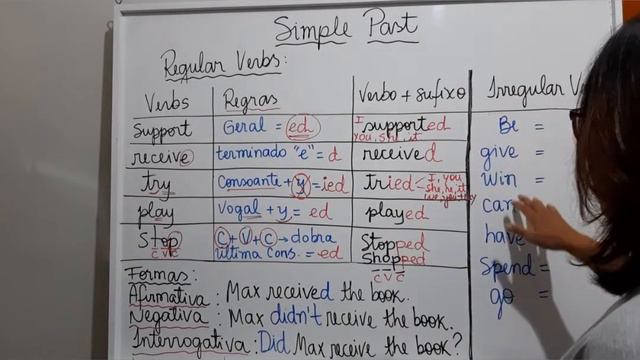 Simple Past
Regular Verbs:
Verbs Regras Verbo + sufixo Irregular
Support Geral = ed supported
I
you, she, it
receive terminado "e" = d received
try Consoante + y = ied tried
I, you
she, he, it
we, you, they
play Vogal + y = ed played
Stop C + V + C → dobra Stopped
CVC última Cons. = ed Shopped
C V C
Be =
give =
win =
have
Spend =
go =
Formas:
Afirmativa: Max received the book.
Negativa: Max didn't receive the book.
Interrogativa: Did Max receive the book?